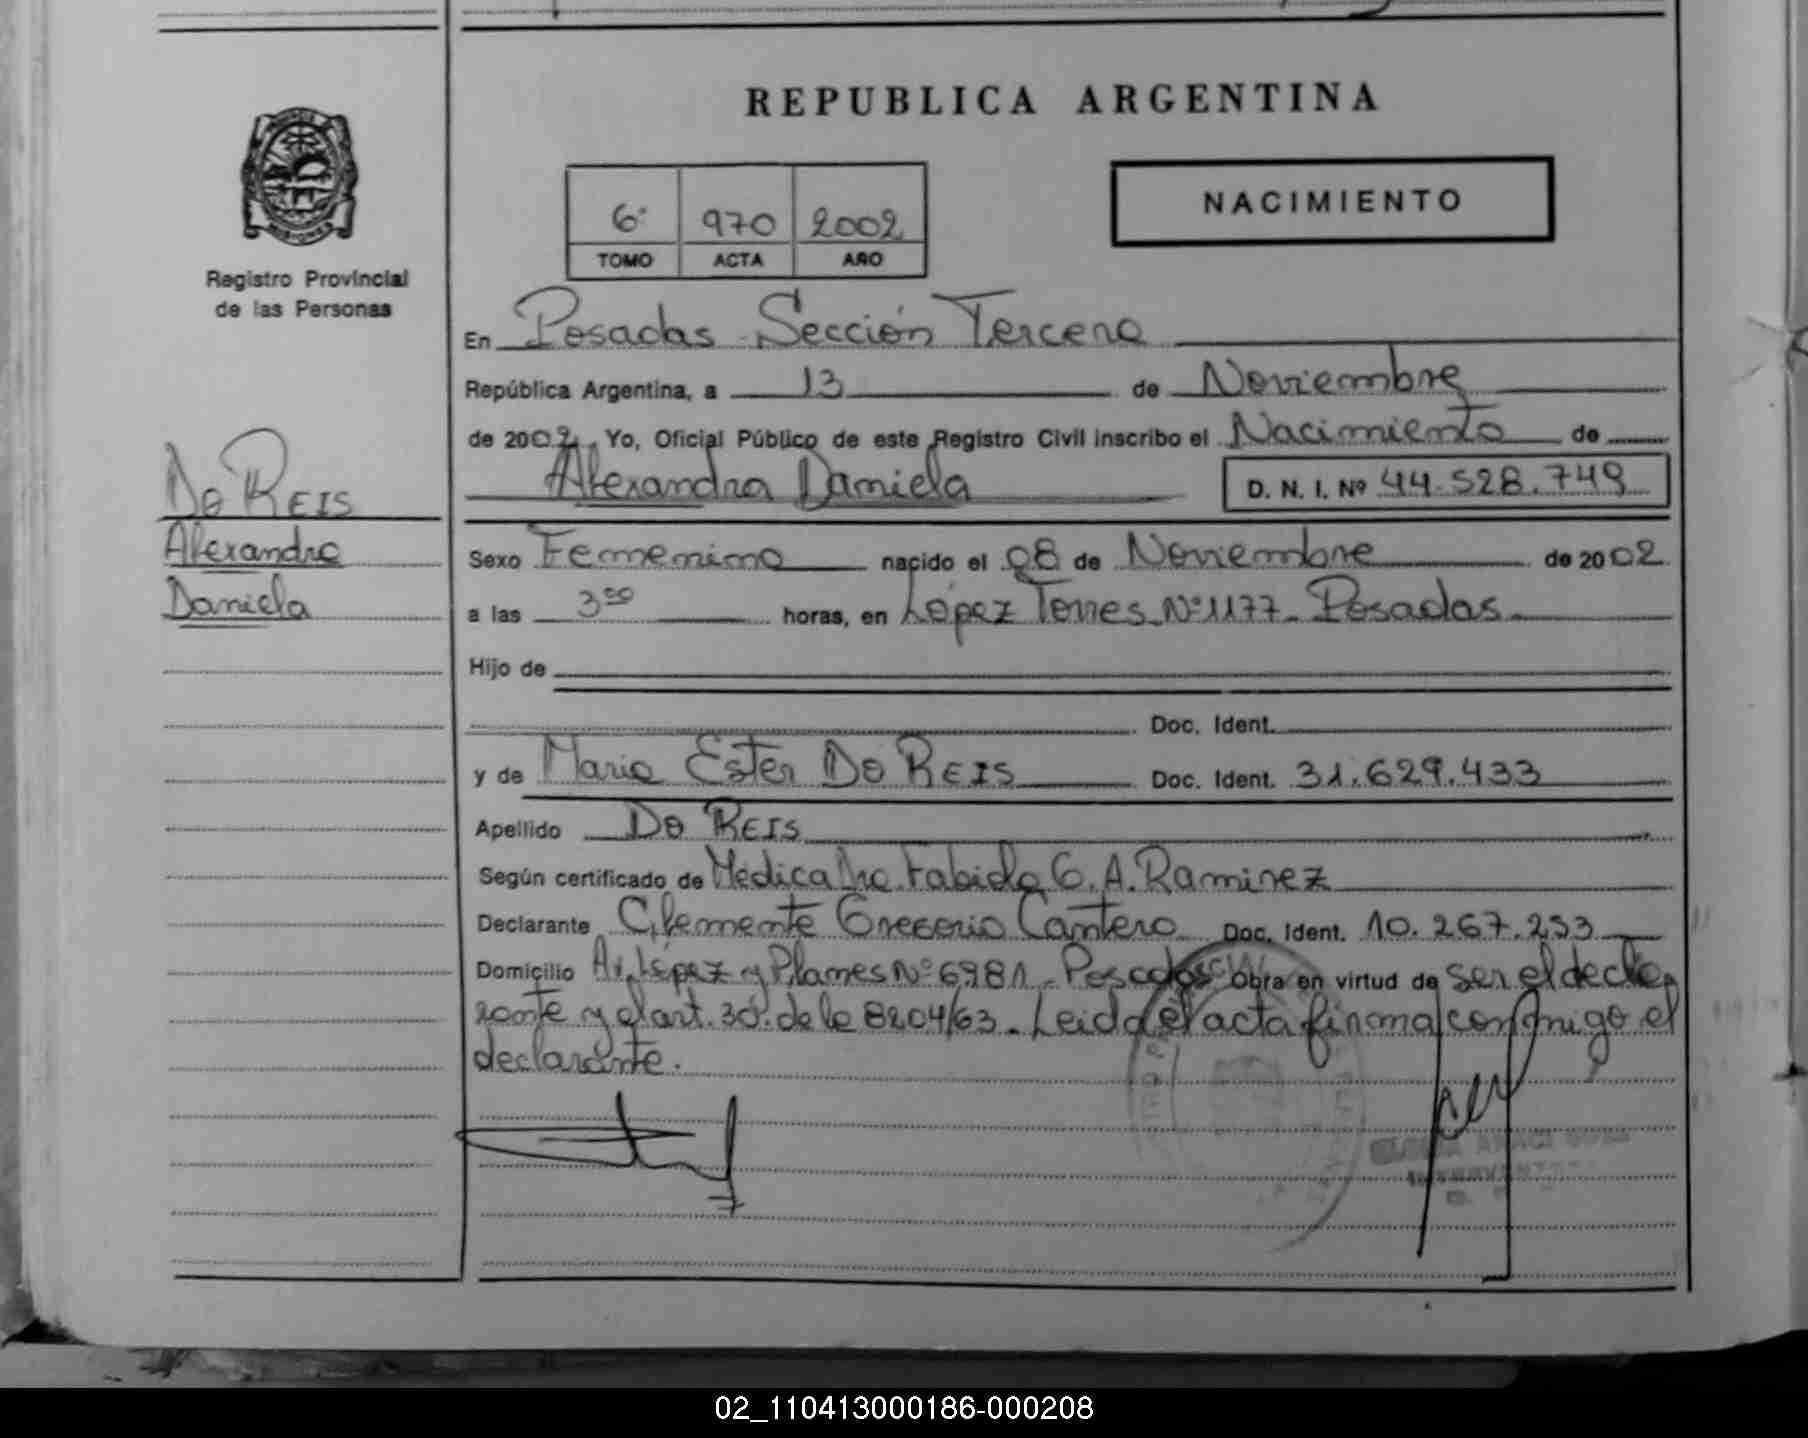 REPUBLICA ARGENTINA
NACIMIENTO
6º 970 2002
TOMO ACTA AÑO
Registro Provincial
de las Personas
En Posadas Sección Tercera
República Argentina, a 13 de Noviembre
de 2002. Yo, Oficial Público de este Registro Civil inscribo el Nacimiento de
Alexandra Daniela D. N. I. Nº 44.528.749
DO REIS
Alexandra
Daniela
Sexo Femenino nacido el 08 de Noviembre de 2002
a las 3⁰⁰ horas, en López Torres Nº 1177 - Posadas
Hijo de
Doc. Ident.
y de Maria Ester DO REIS Doc. Ident. 31.629.433
Apellido DO REIS
Según certificado de Médica Dra. Fabiola G. A. Ramirez
Declarante Clemente Gregorio Cantero Doc. Ident. 10.267.253
Domicilio Av. López y Planes Nº 6981 - Posadas Obra en virtud de ser el decla
rante y el art. 30º de la 8204/63 - Leida el acta firma conmigo el
declarante.
02_110413000186-000208